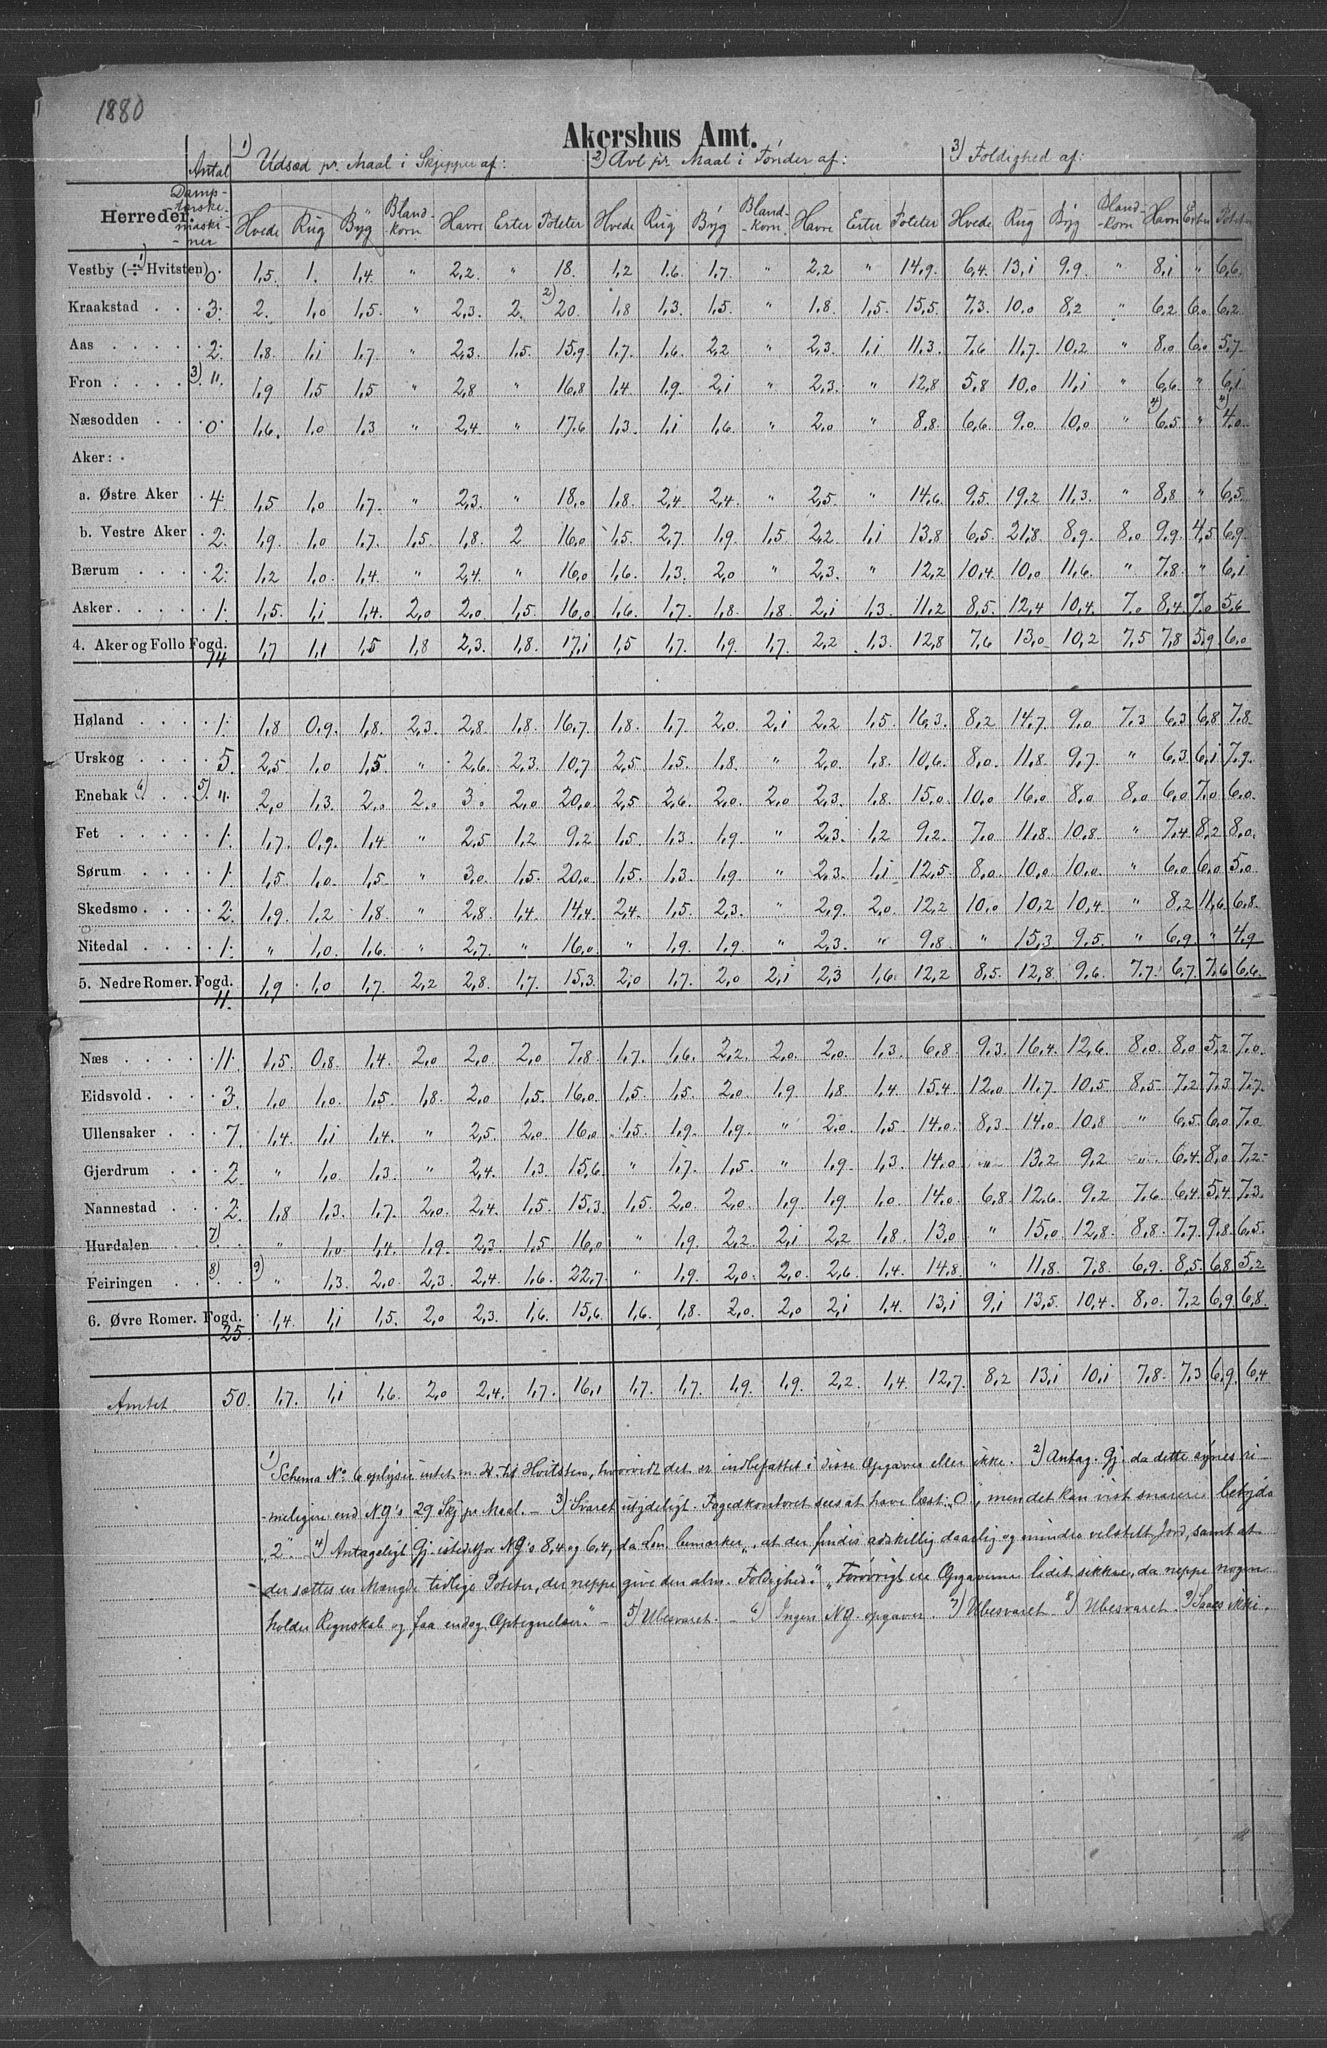 1880
Akershus Amt.
Antal Damp-tærske-maski-ner 1) Udsæd pr. Maal i Skjepper af: 2) Avl pr. Maal i Tønder af: 3) Foldighed af:
Herreder. Hvede Rug Byg Bland-korn Havre Erter Poteter Hvede Rug Byg Bland-korn Havre Erter Poteter Hvede Rug Byg Bland-korn Havre Erter Poteter
Vestby (÷ Hvitsten) 1) 0. 1,5. 1. 1,4. " 2,2. " 18. 1,2 1,6. 1,7. " 2,2 " 14,9. 6,4. 13,1 9,9. " 8,1 " 6,6.
Kraakstad . . . 3. 2. 1,0 1,5. " 2,3. 2. 2) 20. 1,8 1,3. 1,5. " 1,8. 1,5. 15,5. 7,3. 10,0 8,2 " 6,2 6,0 6,2.
Aas . . . . . 2. 1,8. 1,1 1,7. " 2,3. 1,5. 15,9. 1,7. 1,6. 2,2 " 2,3. 1,1 11,3. 7,6 11,7. 10,2 " 8,0 6,0 5,7.
Fron . . . . 3) " 1,9 1,5 1,5 " 2,8 " 16,8 1,4 1,9. 2,1 " 2,3. " 12,8 5,8 10,0 11,1 " 6,6. " 6,1
Næsodden . . . 0. 1,6. 1,0 1,3 " 2,4. " 17,6 1,3. 1,1 1,6. " 2,0. " 8,8. 6,6. 9,0. 10,0 " 4) 6,5. " 4) 4,0.
Aker: .
a. Østre Aker . 4. 1,5 1,0 1,7. " 2,3. " 18,0 1,8. 2,4 2,4. " 2,5. " 14,6. 9,5. 19,2 11,3. " 8,8 " 6,5.
b. Vestre Aker . 2. 1,9. 1,0 1,7. 1,5. 1,8. 2 16,0 1,5. 2,7. 1,9. 1,5 2,2. 1,1 13,8 6,5. 21,8 8,9. 8,0 9,9. 4,5 6,9.
Bærum . . . . 2. 1,2 1,0. 1,4. " 2,4. " 16,0 1,6. 1,3. 2,0 " 2,3. " 12,2 10,4. 10,0 11,6 " 7,8. " 6,1
Asker . . . . 1. 1,5. 1,1 1,4. 2,0 2,0. 1,5. 16,0 1,6. 1,7. 1,8. 1,8 2,1 1,3. 11,2 8,5. 12,4 10,4. 7,0 8,4 7,0 5,6
4. Aker og Follo Fogd. 14 1,7 1,1 1,5 1,8 2,3. 1,8. 17,1 1,5 1,7. 1,9 1,7. 2,2 1,3. 12,8 7,6 13,0 10,2 7,5 7,8 5,9 6,0
Høland . . . . 1. 1,8 0,9. 1,8. 2,3. 2,8 1,8. 16,7. 1,8. 1,7 2,0. 2,1 2,2 1,5. 16,3. 8,2 14,7. 9,0 7,3 6,3 6,8 7,8
Urskog . . . . 5. 2,5. 1,0 1,5 " 2,6. 2,3. 10,7 2,5 1,5. 1,8. " 2,0. 1,8. 10,6. 8,0. 11,8. 9,7. " 6,3 6,1 7,9.
Enebak 6) . . 5) " 2,0 1,3. 2,0 2,0 3,0 2,0 20,0 2,5 2,6. 2,0. 2,0 2,3. 1,8. 15,0. 10,0 16,0 8,0 8,0 6,0 7,0 6,0.
Fet . . . . . 1. 1,7. 0,9. 1,4 " 2,5 1,2 9,2 1,5. 1,3. 1,9. " 2,3. 1,2 9,2. 7,0 11,8. 10,8. " 7,4 8,2 8,0.
Sørum . . . . 1. 1,5. 1,0. 1,5. " 3,0. 1,5. 20,0. 1,5. 1,3. 1,9 " 2,3. 1,1 12,5 8,0. 10,0 10,0. " 6,0 6,0 5,0.
Skedsmo . . . 2. 1,9. 1,2 1,8. " 2,8. 1,4. 14,4 2,4. 1,5. 2,3. " 2,9. 2,0. 12,2 10,0 10,2 10,4 " 8,2 11,6 6,8.
Nitedal . . . . 1. " 1,0. 1,6. " 2,7. " 16,0. " 1,9. 1,9. " 2,3. " 9,8. " 15,3. 9,5. " 6,9. " 4,9
5. Nedre Romer. Fogd. 11. 1,9 1,0 1,7. 2,2 2,8. 1,7. 15,3. 2,0 1,7. 2,0 2,1 2,3 1,6. 12,2 8,5. 12,8. 9,6. 7,7. 6,7. 7,6 6,6.
Næs . . . . 11. 1,5 0,8. 1,4. 2,0 2,0. 2,0 7,8. 1,7. 1,6. 2,2. 2,0. 2,0. 1,3. 6,8. 9,3. 16,4. 12,6. 8,0. 8,0 5,2 7,0.
Eidsvold . . . 3. 1,0 1,0. 1,5. 1,8. 2,0 1,5. 16,0. 1,5. 1,5. 2,0 1,9 1,8. 1,4 15,4 12,0 11,7. 10,5. 8,5. 7,2 7,3 7,7
Ullensaker . . . 7. 1,4. 1,1 1,4. " 2,5. 2,0 16,0 1,5. 1,9. 1,9. " 2,0. 1,5. 14,0. 8,3. 14,0 10,8 " 6,5. 6,0 7,0
Gjerdrum . . . 2 " 1,0 1,3. " 2,4. 1,3. 15,6. " 1,7. 1,5. " 1,9. 1,3. 14,0 " 13,2 9,2 " 6,4. 8,0 7,2
Nannestad . . . 2. 1,8 1,3. 1,7. 2,0. 2,4. 1,5. 15,3. 1,5 2,0 2,0. 1,9 1,9. 1,0. 14,0 6,8. 12,6. 9,2 7,6 6,4. 5,4. 7,3.
Hurdalen . . 7) . " 1,0 1,4. 1,9. 2,3. 1,5. 16,0 " 1,9. 2,2 2,1 2,2 1,8. 13,0 " 15,0 12,8. 8,8. 7,7. 9,8. 6,5.
Feiringen . . 8) . 9) " 1,3. 2,0. 2,3. 2,4. 1,6. 22,7. " 1,9. 2,0. 2,0. 2,6. 1,4. 14,8. " 11,8. 7,8. 6,9. 8,5. 6,8. 5,2
6. Øvre Romer. Fogd. 25 1,4. 1,1 1,5. 2,0 2,3. 1,6. 15,6. 1,6. 1,8. 2,0. 2,0 2,1 1,4. 13,1 9,1 13,5. 10,4. 8,0. 7,2 6,9 6,8.
Amtet. 50. 1,7. 1,1 1,6. 2,0 2,4. 1,7. 16,1 1,7. 1,7. 1,9. 1,9. 2,2 1,4. 12,7. 8,2 13,1 10,1 7,8. 7,3 6,9. 6,4
1) Schema No 6 oplyser intet m. H. til Hvitsten, hvorvidt det er indbefattet i disse Opgaver eller ikke. 2) Antag. Gj. da dette synes ri-
meligere end NG's 29 Skj. pr Maal. – 3) Svaret utydeligt. Fogedkontoret sees at have læst „0", men det kan vist snarere betyde
„2". 4) Antageligt Gj. istedetfor NG's 8,4 og 6,4, da Len. bemærker, „at der findes adskillig daarlig og mindre velstelt Jord, samt at
der sættes en Mængde tidlige Poteter, der neppe give den alm. Foldighed." „Forøvrigt ere Opgaverne lidet sikkre, da neppe nogen
holder Regnskab og faa endog Optegnelser." – 5) Ubesvaret. – 6) Ingen NG. opgaver. 7) Ubesvaret 8) Ubesvaret. 9) Saaes ikke.